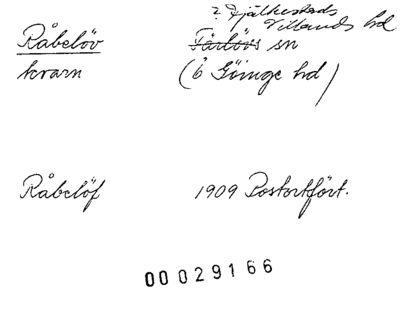 ? Fjälkestads
Villands hd
Råbelöv Färlövs sn
kvarn (Ö Göinge hd)
Råbelöf 1909 Postortfört.
00 029166